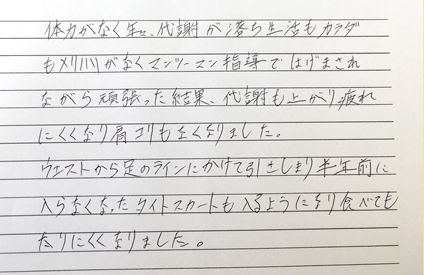 体力がなく年々、代謝が落ち生活もカラダ
もメリハリがなくマンツーマン指導ではげまされ
ながら頑張った結果、代謝も上がり疲れ
にくくなり肩コリも良くなりました。
ウエストから足のラインにかけて引きしまり半年前に
入らなくなったタイトスカートも入るようになり食べても
太りにくくなりました。